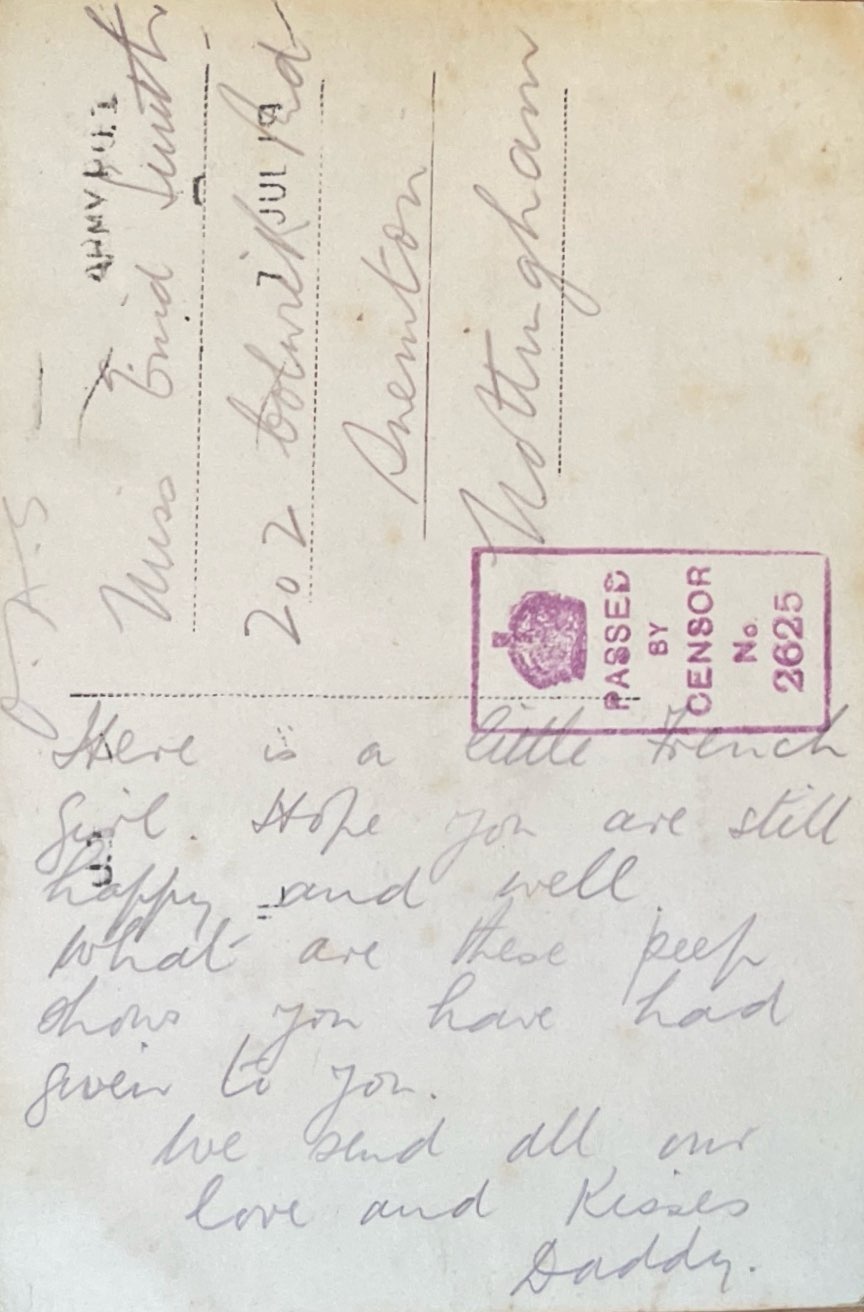 Here is a little French
girl. Hope you are still
happy and well.
What are these peep
shows you have had
given to you.
We send all our
love and Kisses
Daddy.
Miss Enid Smith
202 Colwick Rd
Sneinton
Nottingham
ARMY
JUL 19
PASSED
BY
CENSOR
No.
2625